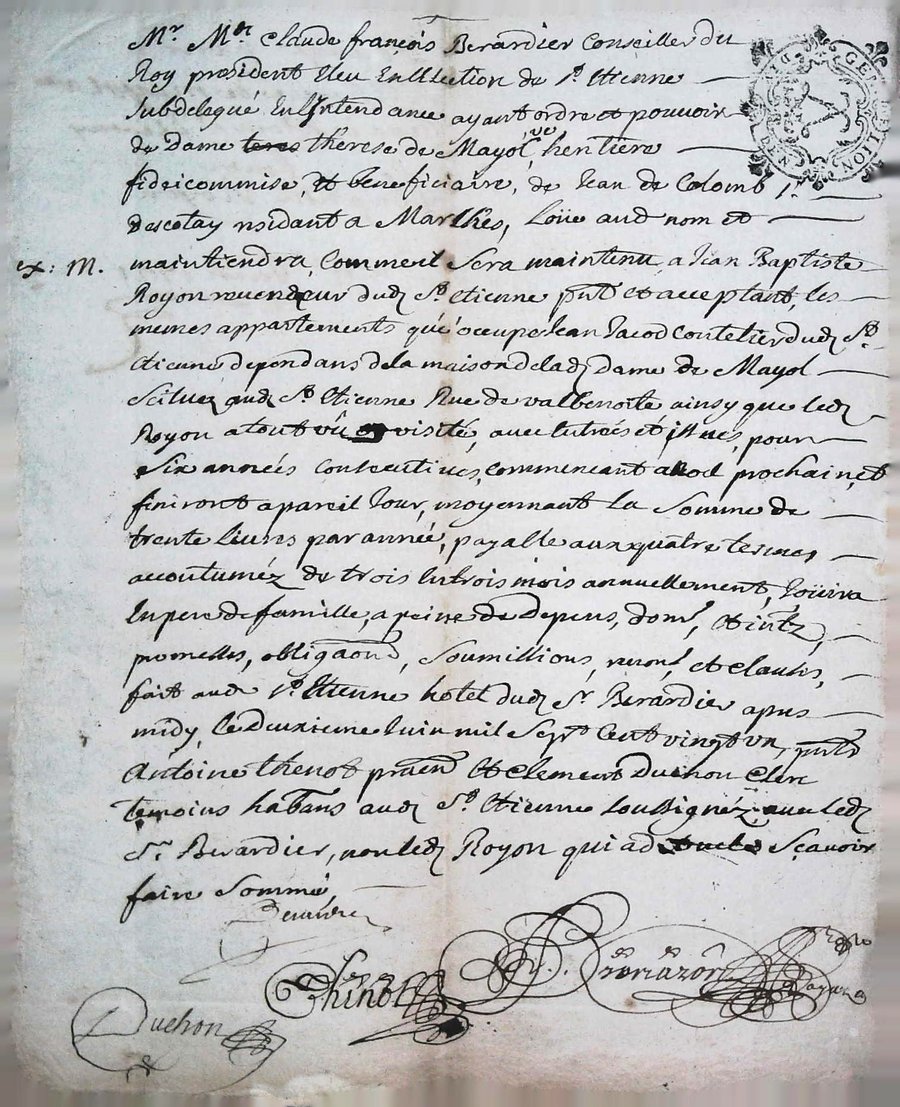 Mr Mre Claude françois Berardier Conseiller du
Roy president Eleu En L'Election de St Etienne
Subdelegué En L'Intendance ayant ordre et pouvoir
de Dame therese de Mayol ve, heritiere
fideicommise, et beneficiaire, de Jean de Colomb Sr
descotay residant a Marlhes, Loüe aud nom et
ex: M. maintiendra, Comme il Sera maintenu, a Jean Baptiste
Royon revendeur dud St Etienne pnt et acceptant, les
mesmes appartements que occupe Jean Jacod Coutelier dud St
Etienne dependans de la maison de lad dame de Mayol
Scituez aud St Etienne Rue de valbenoite ainsy que led
Royon a tout vû visité, avec Entrées et issues, pour
Six années Consecutives, commencant a noel prochain, et
finiront a pareil Jour, moyennant la Somme de
trente Livres par année, payable aux quatre termes
accoutumez de trois En trois mois annuellement, Joüira
En pere de famille, a peine de Depens, dom, et intz,
promesses, obligaons, Soumissions, renons, et clauses,
fait aud St Etienne hotel dud Sr Berardier apres
midy, le Deuxieme Juin mil Sept Cent vingt un, pnts
Antoine thenot praen et Clement Duchon Clerc
temoins habans aud St Etienne Soussignéz avec led
Sr Berardier, non led Royon qui a d Sçavoir
faire Sommé
Berardier
Thenot
Duchon